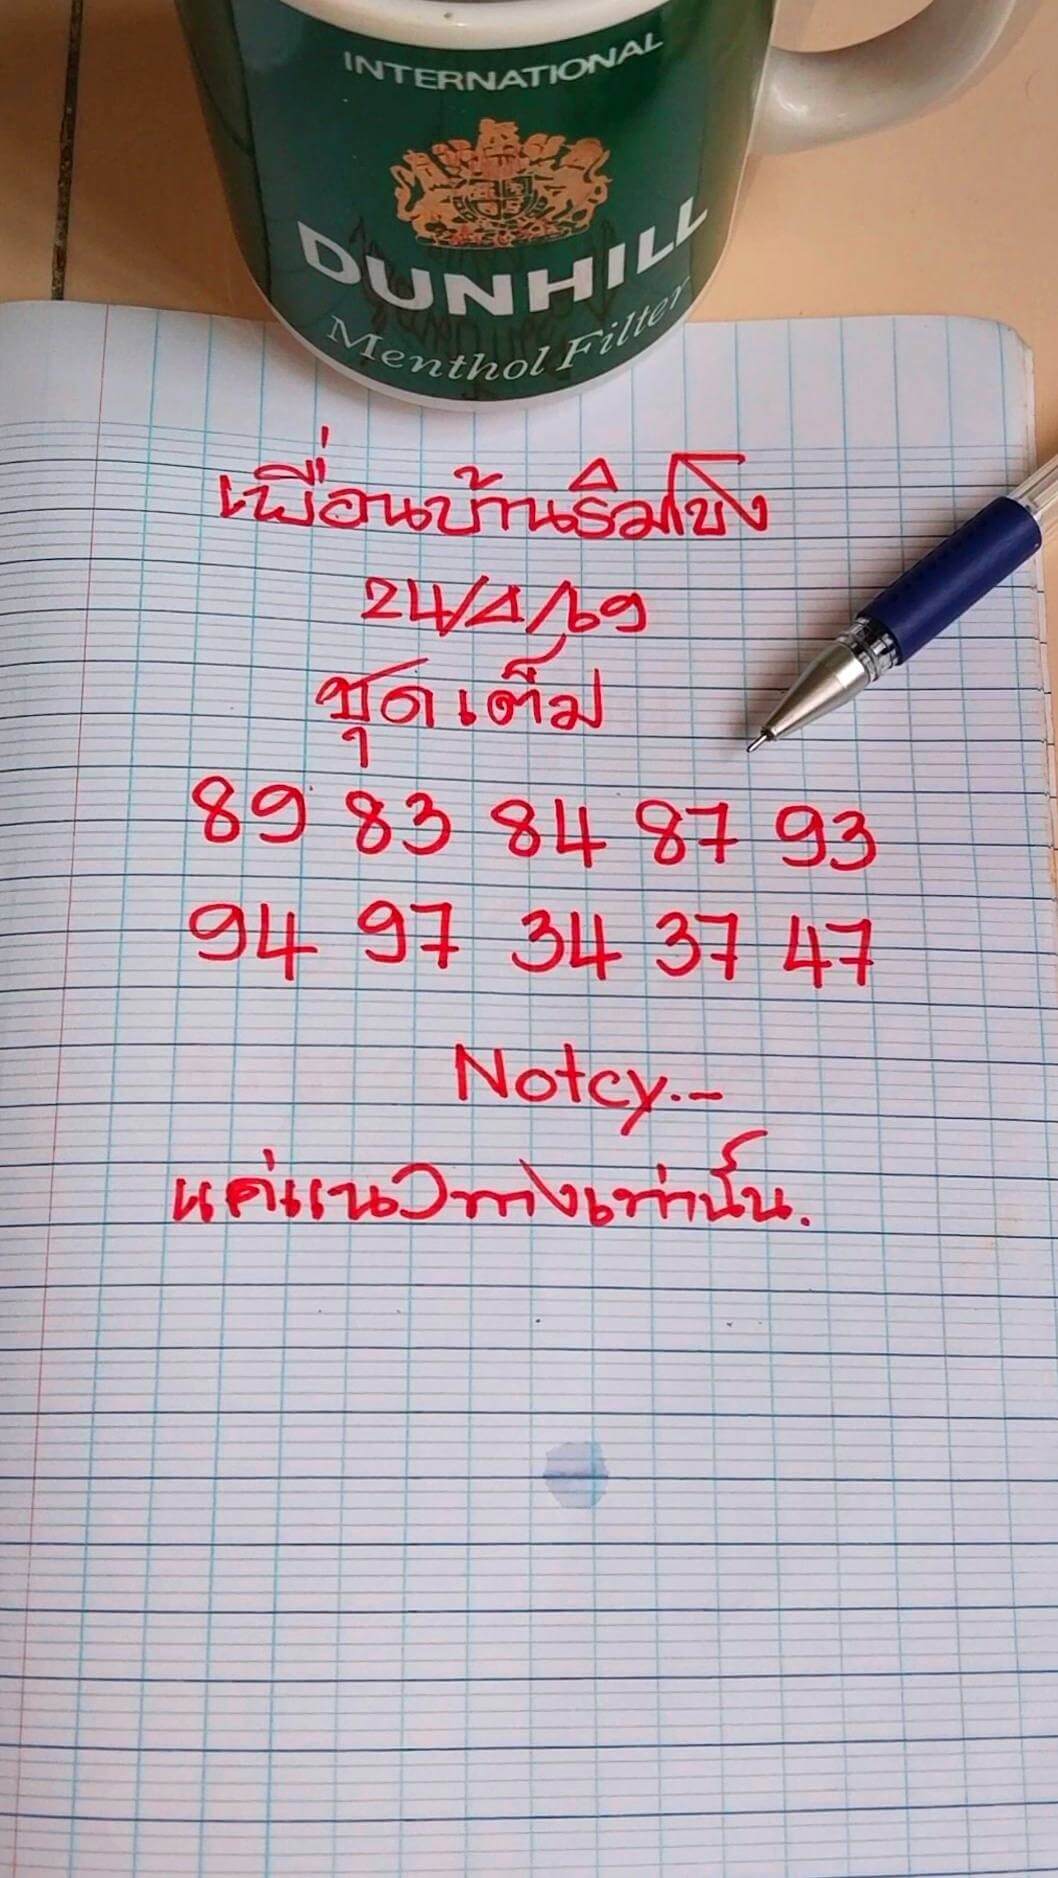 INTERNATIONAL
DUNHILL
Menthol Filter
เพื่อนบ้านริมโขง
24/4/69
ชุดเต็ม
89 83 84 87 93
94 97 34 37 47
Notcy.-
แค่แนวทางเท่านั้น.